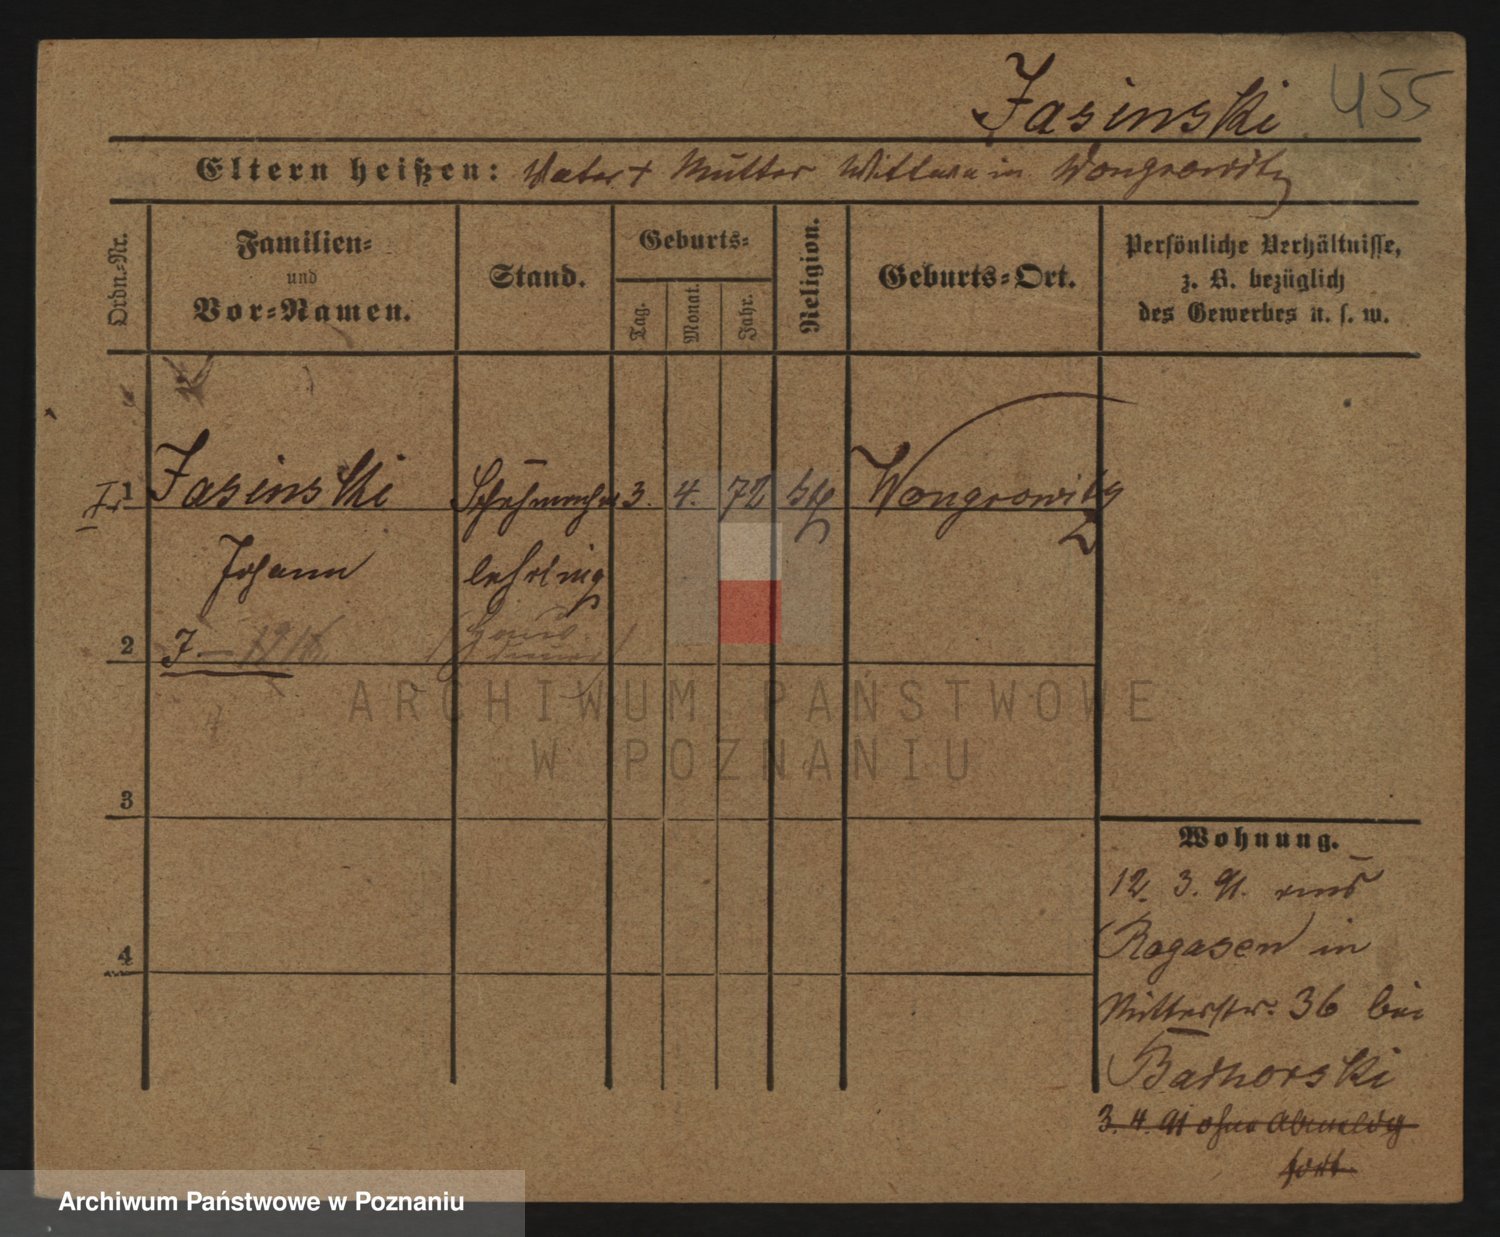 Jasinski 455
Eltern heißen: Vater + Mutter Wittwe in Wongrowitz
Ordn.-Nr.
Familien-
und
Vor-Namen.
Stand.
Geburts-
Tag.
Monat.
Jahr.
Religion.
Geburts-Ort.
Persönliche Verhältnisse,
z. B. bezüglich
des Gewerbes u. s. w.
1 Jasinski Schuhmacher 3. 4. 72 kth Wongrowitz
Johann lehrling
2 J
3
4
Wohnung.
12. 3. 91. aus
Rogasen in
Ritterstr. 36 bei
3. 4. 91 ohne Abmeldg
fort
ARCHIWUM PAŃSTWOWE
W POZNANIU
Archiwum Państwowe w Poznaniu